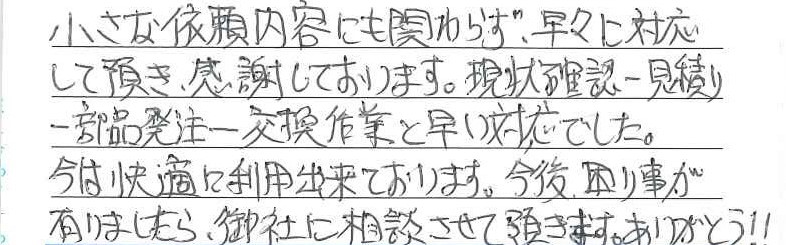 小さな依頼内容にも関わらず、早々に対応
して頂き、感謝しております。現状確認－見積り
－部品発注－交換作業と早い対応でした。
今は快適に利用出来ております。今後、困り事が
有りましたら、御社に相談させて頂きます。ありがとう!!